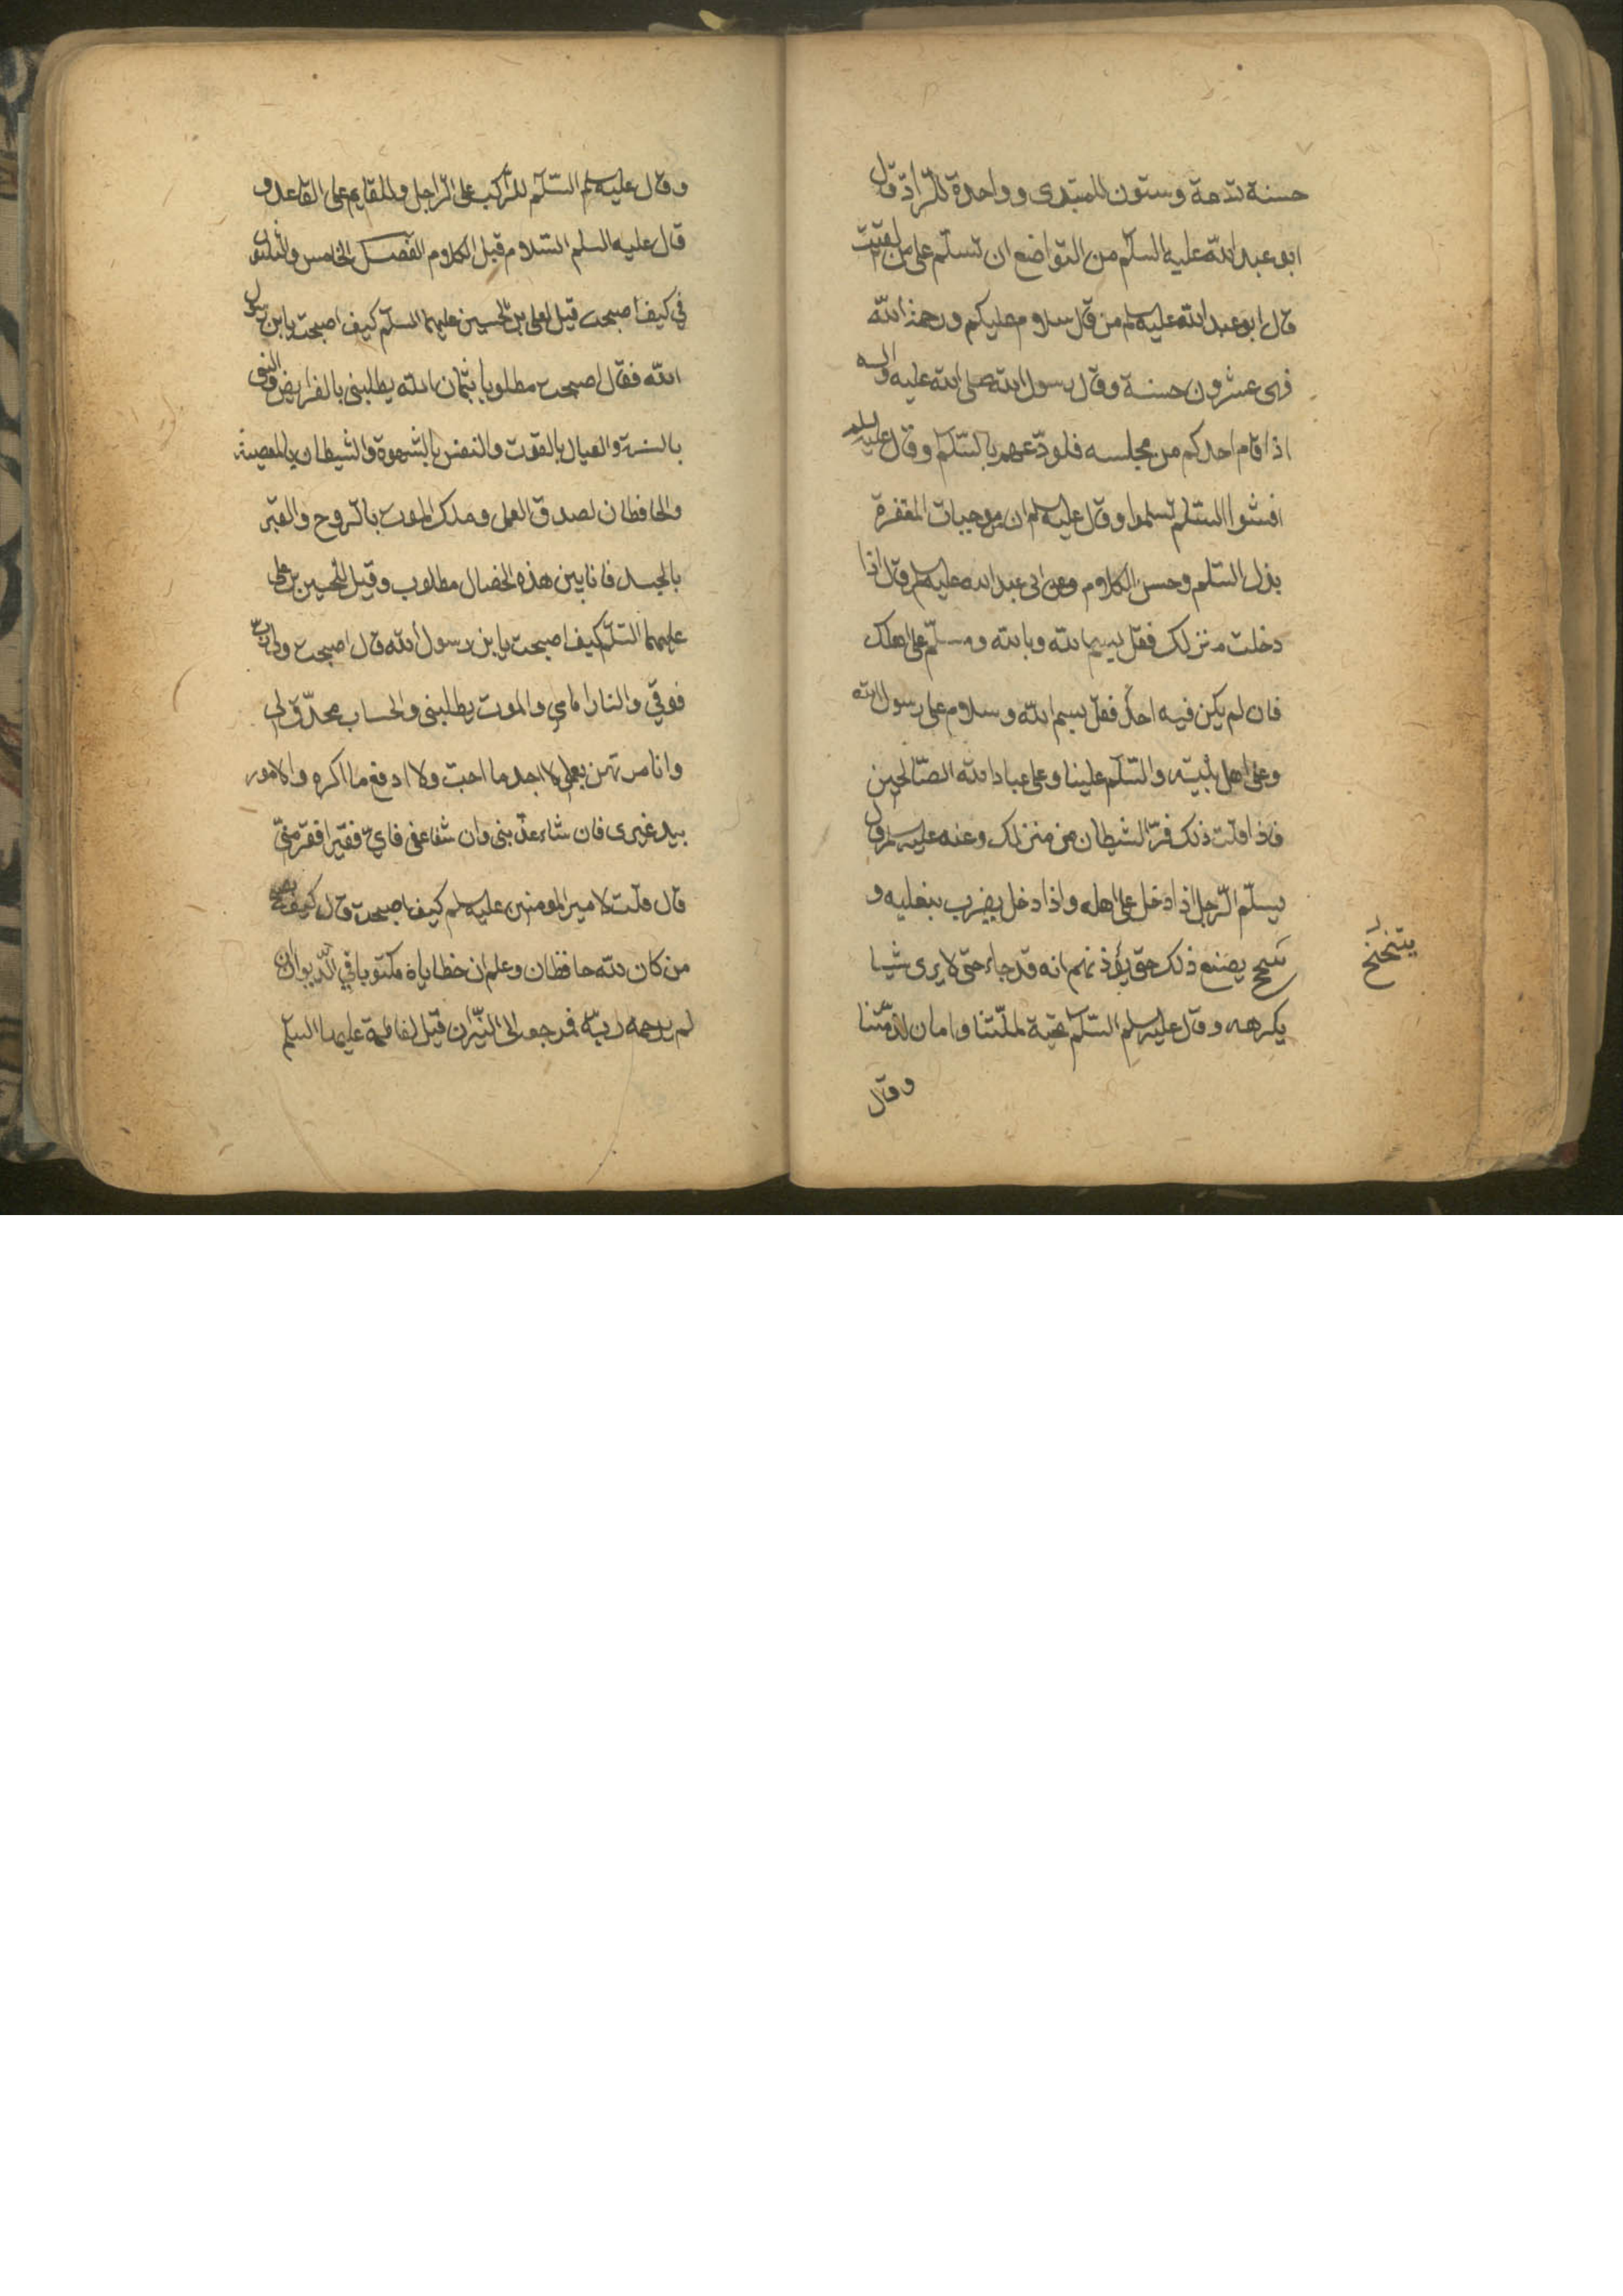 حسنة تسعة وستون للمبتدى وواحدة للرّادّ قال
ابو عبد الله عليه السلّم من التواضع ان تسلّم على من لقيت
قال ابو عبد الله عليه سلم من قال سلام عليكم ورحمة الله
فهى عشرون حسنة وقال رسول الله صلى الله عليه واله
اذا قام احدكم من مجلسه فلودّعهم بالسّلم وقال عليه السلم
افشوا السّلم تسلموا وقال عليه سلم ان من موجبات المغفرة
بذل السّلم وحسن الكلام وعن ابى عبد الله عليه سلم قال اذا
دخلت منزلك فقل بسم الله وبالله وسلّم على اهلك
فان لم يكن فيه احد فقل بسم الله وسلام على رسول الله
وعلى اهل بيته والسّلم علينا وعلى عباد الله الصّالحين
فاذا قلت ذلك فرّ الشيطان من منزلك وعنه عليه سلم قال
يسلّم الرّجل اذا دخل على اهله واذا دخل يضرب بنعليه و
يصنع ذلك حتى يؤذنهم انه قد جاء حتى لا يرى شيا
يتنحنح
يكرهه وقال عليه سلم السّلم تحية لملّتنا وامان لذمّتنا
وقال
وقال عليه سلم السّلم للرّاكب على الرّاجل وللقايم على القاعد و
قال عليه السلم السّلام قبل الكلام الفصل الخامس والثلثون
في كيف اصبحت قيل لعلى بن الحسين عليهما السلّم كيف اصبحت يا بن رسول
الله فقال اصبحت مطلوبا بثمان الله يطلبنى بالفرايض والنبى
بالسنة والعيال بالقوت والنفس بالشهوة والشيطان بالمعصية
والحافظان بصدق العمل وملك الموت بالرّوح والقبر
بالجسد فانا بين هذه الخصال مطلوب وقيل للحسين بن على
عليهما السّلم كيف اصبحت يا بن رسول الله قال اصبحت ولى ربّ
فوقي والنار امامي والموت يطلبنى والحساب محدّق لى
وانا مرتهن بعملى لا اجد ما احبّ ولا ادفع ما اكره والامور
بيد غيرى فان شاء عذّبنى وان شفا عفى فايّ فقير افقر منّي
قال قلت لامير المومنين عليه سلم كيف اصبحت قال كيف يصبح
من كان لله حافظان وعلم ان خطاياه مكتوبا في الدّيوان ان
لم يرحمه ربّه فمرجعه الى النيّران قيل لفاطمة عليها السلم